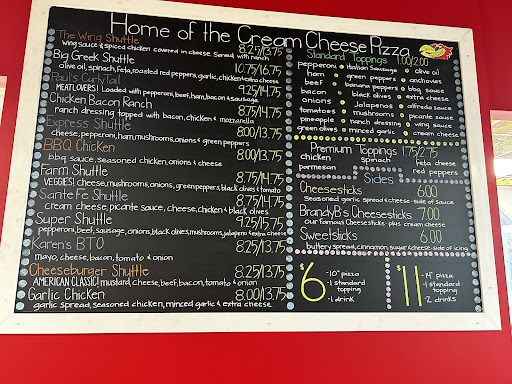 Home of the Cream Cheese Pizza
The Wing Shuttle 8.25/13.75
Wing sauce & spiced chicken covered in cheese. Served with ranch
Big Greek Shuttle 10.75/16.75
olive oil, spinach, feta, roasted red peppers, garlic, chicken & extra cheese
Paul's CurlyTail 9.25/14.75
MEATLOVERS! Loaded with pepperoni, beef, ham, bacon & sausage
Chicken Bacon Ranch 8.75/14.75
ranch dressing topped with bacon, chicken & mozzarella
Express Shuttle 8.00/13.75
cheese, pepperoni, ham, mushrooms, onions & green peppers
BBQ Chicken 8.00/13.75
bbq sauce, seasoned chicken, onions & cheese
Farm Shuttle 8.75/14.75
VEGGIES! cheese, mushrooms, onions, green peppers, black olives & tomato
Sante Fe Shuttle 8.75/14.75
cream cheese, picante sauce, cheese, chicken & black olives
Super Shuttle 9.25/15.75
pepperoni, beef, sausage, onions, black olives, mushrooms, jalapeno & extra cheese
Karen's BTO 8.25/13.75
mayo, cheese, bacon, tomato & onion
Cheeseburger Shuttle 8.25/13.75
AMERICAN CLASSIC! mustard, cheese, beef, bacon, tomato & onion
Garlic Chicken 8.00/13.75
garlic spread, seasoned chicken, minced garlic & extra cheese
Standard Toppings 1.00/2.00
pepperoni Italian Sausage olive oil
ham green peppers anchovies
beef banana peppers bbq sauce
bacon black olives extra cheese
onions Jalapenos alfredo sauce
tomatoes mushrooms picante sauce
pineapple ranch dressing wing sauce
green olives minced garlic cream cheese
Premium Toppings 1.75/2.75
chicken spinach feta cheese
parmesan red peppers
Sides
Cheesesticks 6.00
seasoned garlic spread & cheese-side of sauce
BrandyB's Cheesesticks 7.00
our famous Cheesesticks-plus cream cheese
Sweetsticks 6.00
buttery spread, cinnamon, sugar & cheese-side of icing
$6
-10" pizza
-1 standard
topping
-1 drink
$11
-14" pizza
-1 standard
topping
-2 drinks